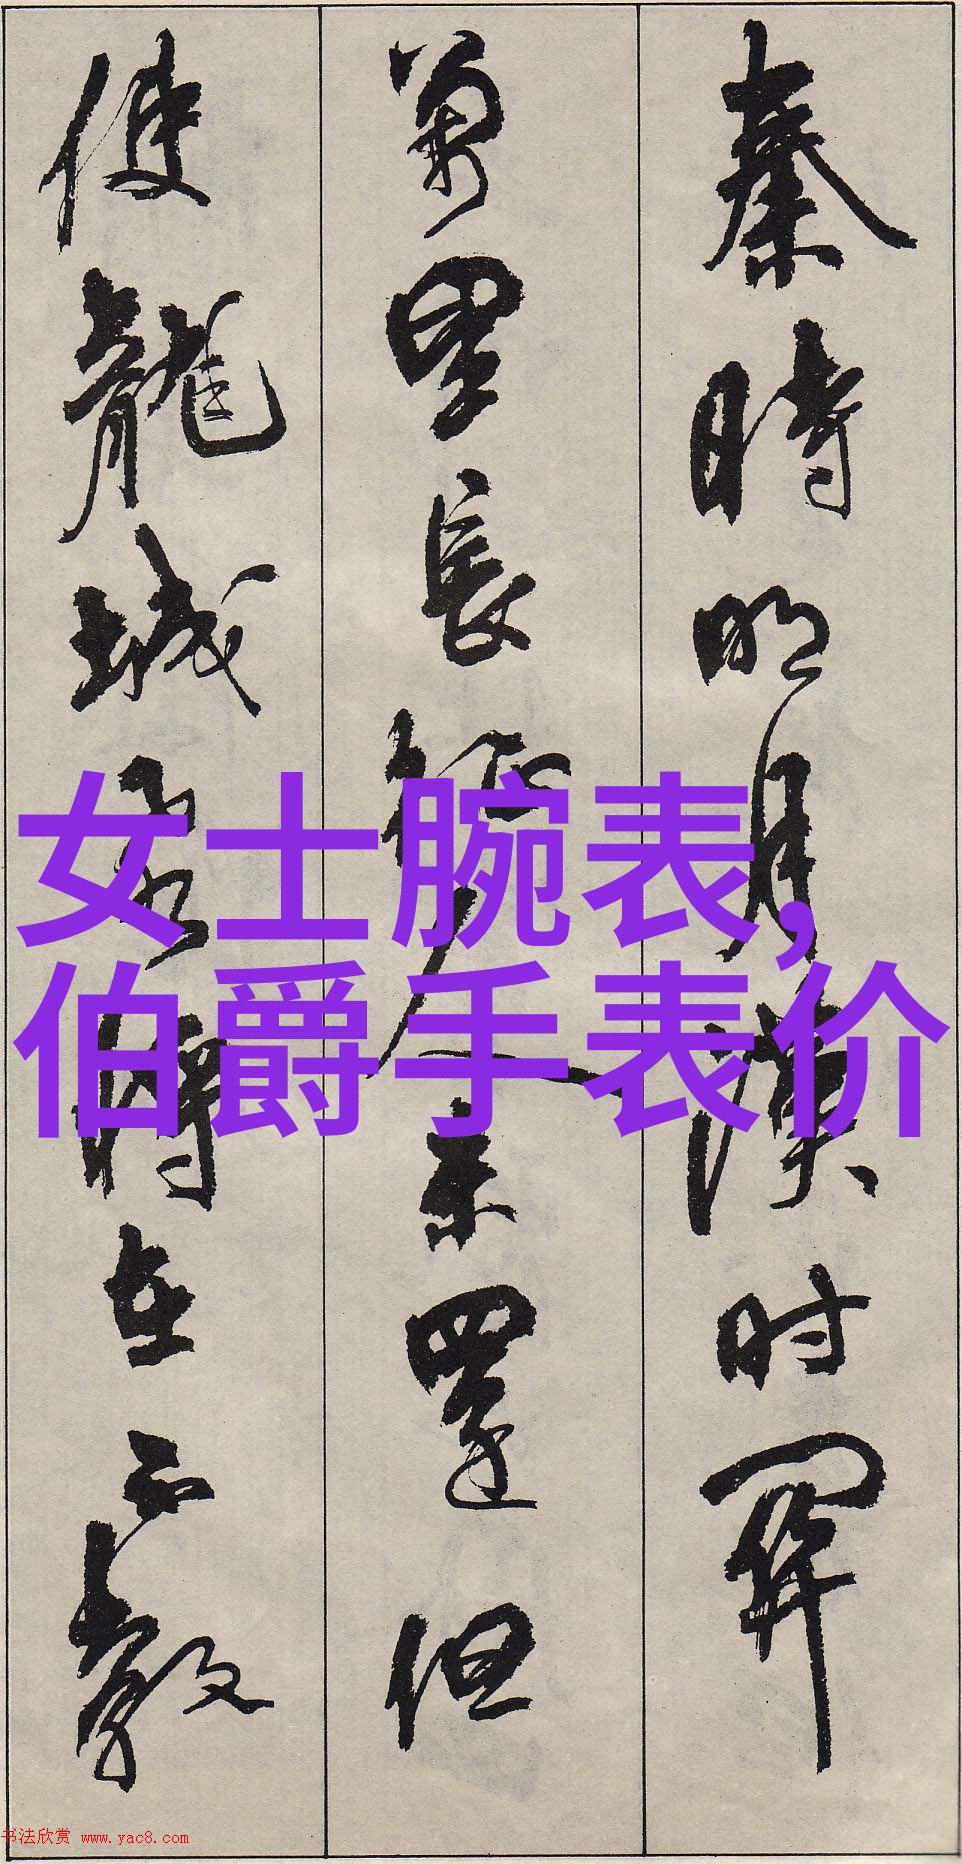 秦時明月漢时関
萬里長征人未還但
使龍城飛將在不教
女士腕表,
伯爵手表价
书法欣赏 www.yac8.com